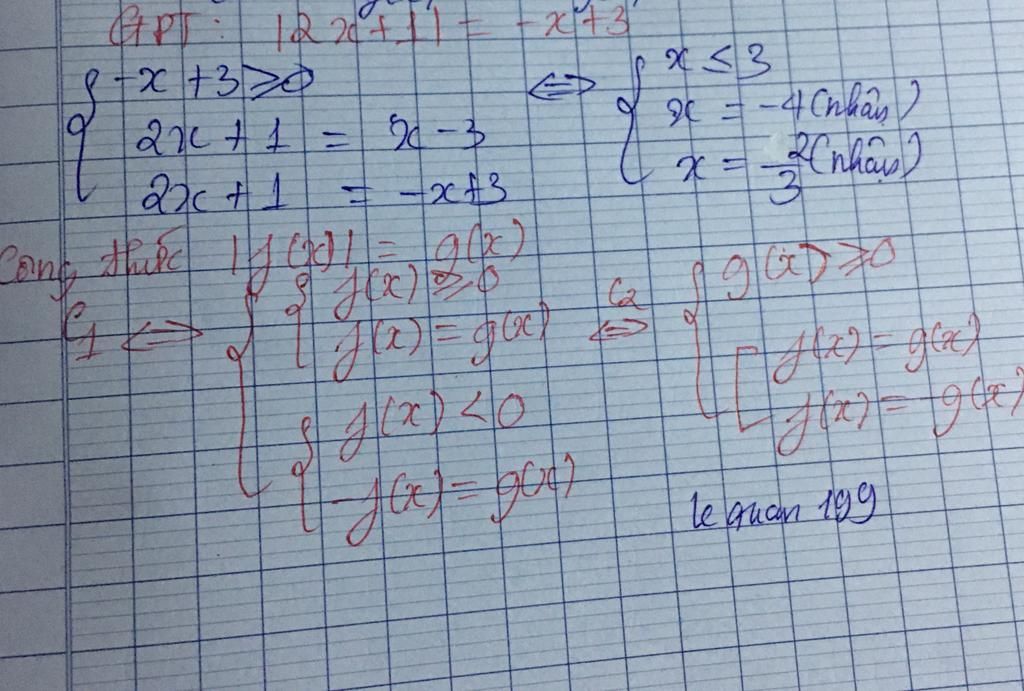 GPT: |2x+1| = -x+3
{ -x+3 ≥ 0 ⇔ { x ≤ 3
2x+1 = x-3 x = -4 (nhân)
2x+1 = -x+3 x = 2/3 (nhân)
Cong thức |f(x)| = g(x)
C1 ⇔ { { f(x) ≥ 0
f(x) = g(x)
{ f(x) < 0
-f(x) = g(x)
C2 ⇔ { g(x) ≥ 0
[ f(x) = g(x)
f(x) = g(x)
le quan 199